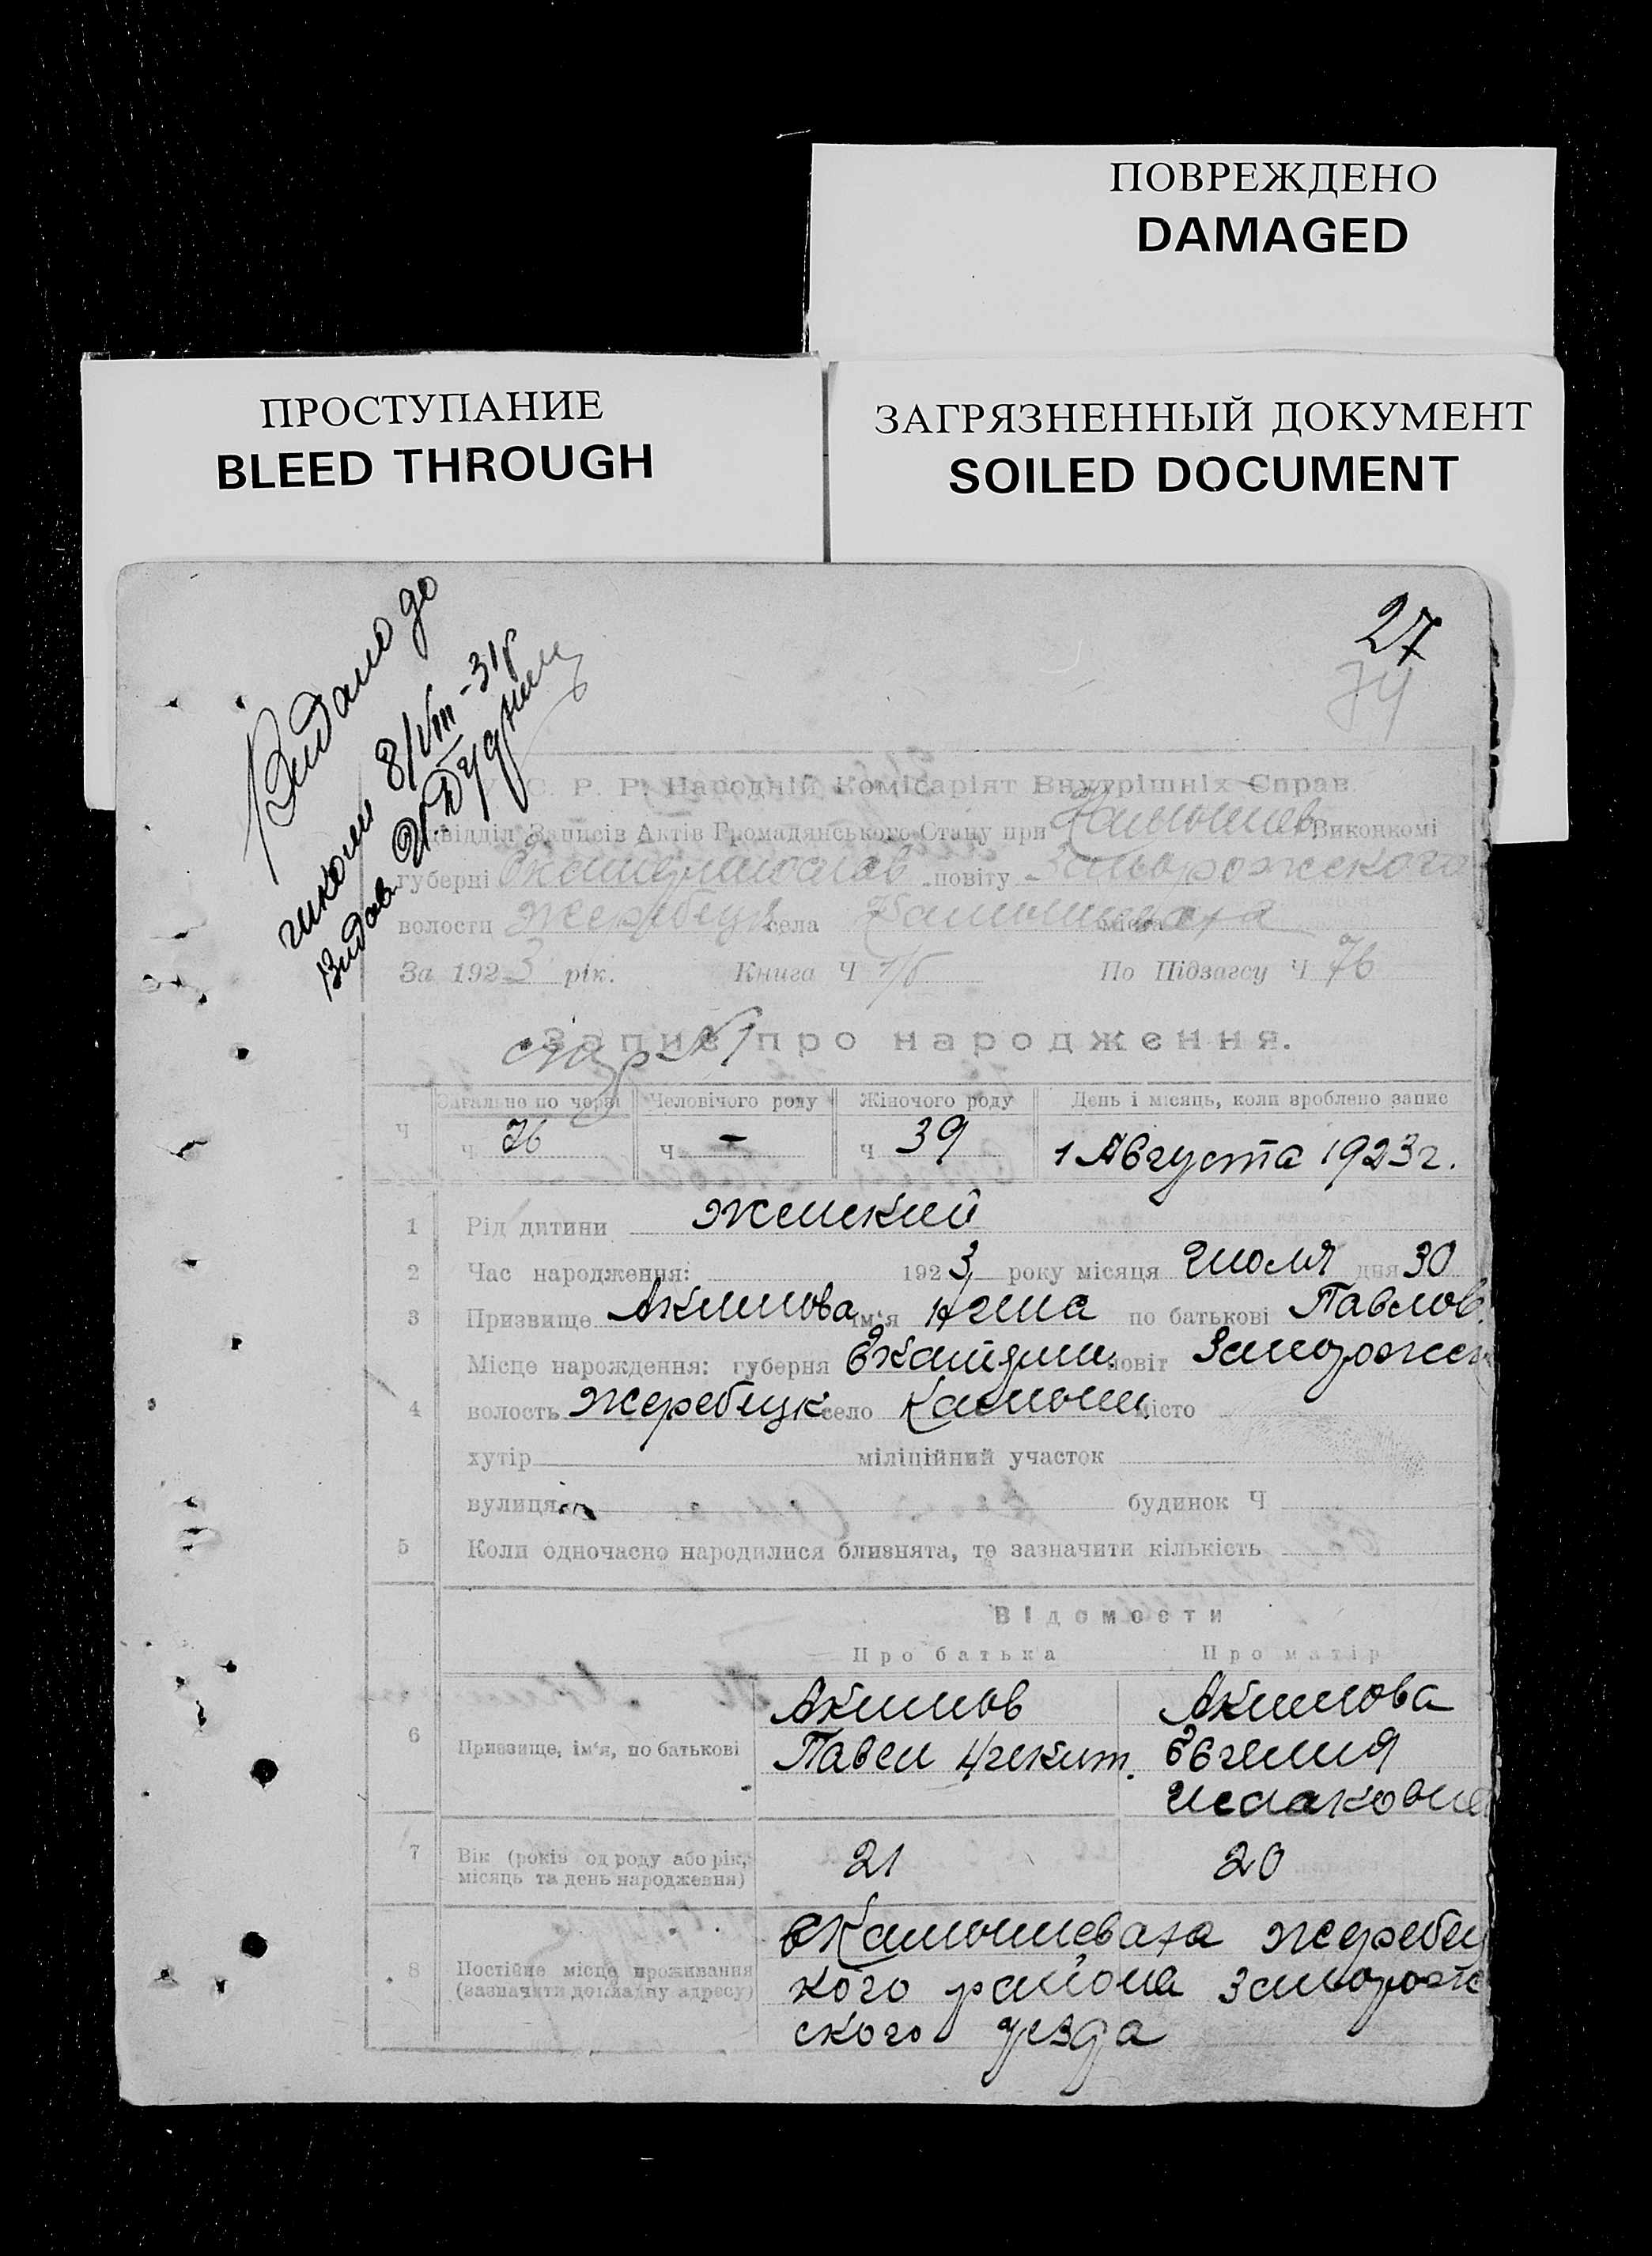 ПОВРЕЖДЕНО
DAMAGED
ПРОСТУПАНИЕ
BLEED THROUGH
ЗАГРЯЗНЕННЫЙ ДОКУМЕНТ
SOILED DOCUMENT
27
74
Видано до
школи 8/VIII-31р
Видав
С. Р. Р. Народній Комісаріят Внутрішніх Справ.
відділ Записів Актів Громадянського Стану при Камышев Виконкомі
губерні повіту Запорожского
волости Жеребецк села Камышеваха міста
За 1923 рік. Книга Ч 1/б По Підзагсу Ч 76
Запис про народження.
Ч Загально по черзі Человічого роду Жіночого роду День і місяць, коли зроблено запис
ч 76 ч - ч 39 1 Августа 1923 г.
1 Рід дитини женский
2 Час народження: 1923 року місяця Июля дня 30
3 Призвище Акимова ім'я Нина по батькові Павлов.
Місце народження: губерня Екатерин. повіт Запорожск
4 волость Жеребецк село Камыш. місто
хутір міліційний участок
вулиця будинок Ч
5 Коли одночасно народилися близнята, то зазначити кількість
Відомости
Про батька Про матір
6 Призвище, ім'я, по батькові
Акимов Акимова
Павел Никит. Евгения
Исааковна
7 Вік (років од роду або рік, місяць та день народження) 21 20
8 Постійне місце проживання (зазначити докладну адресу)
с Камышеваха Жеребец
кого района Запорож
ского уезда